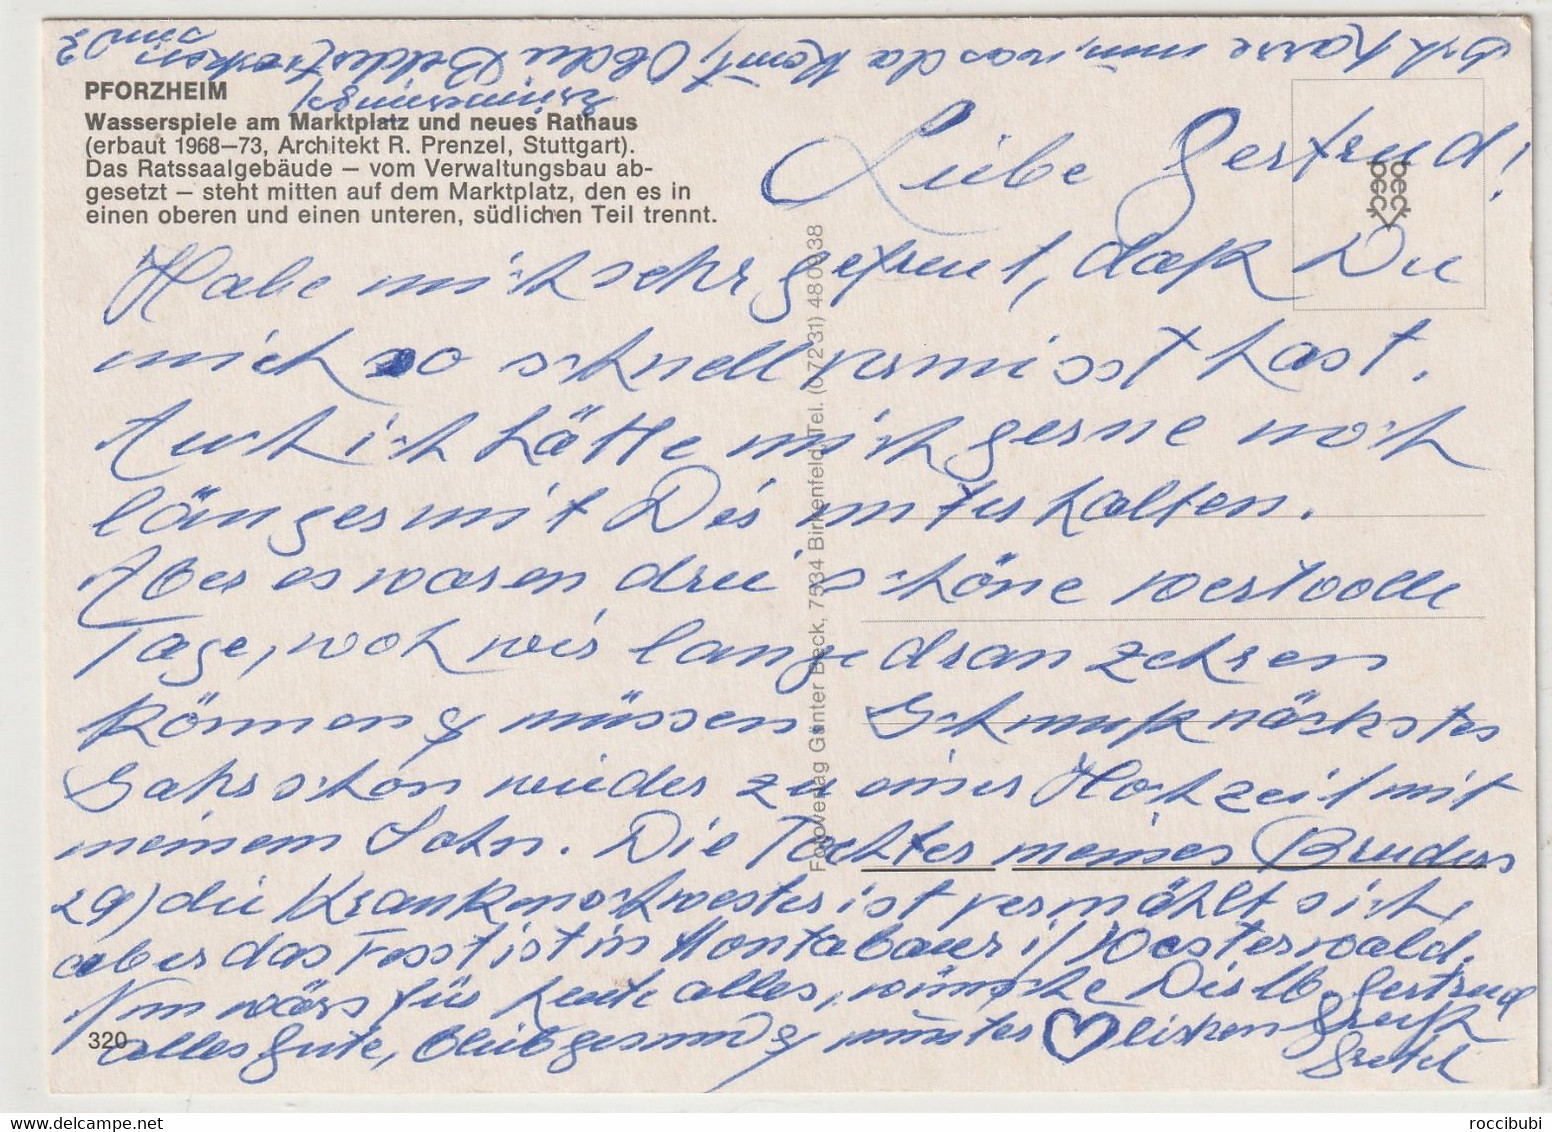 PFORZHEIM
Wasserspiele am Marktplatz und neues Rathaus
(erbaut 1968–73, Architekt R. Prenzel, Stuttgart).
Das Ratssaalgebäude – vom Verwaltungsbau ab-
gesetzt – steht mitten auf dem Marktplatz, den es in
einen oberen und einen unteren, südlichen Teil trennt.
Liebe Gertrud!
Habe mich sehr gefreut, daß Du
mich so schnell vermisst hast.
Auch ich hätte mich gerne noch
länger mit Dir unterhalten.
Aber es waren drei schöne wertvolle
Tage, woh wir lange dran zehren
können & müssen
nächstes
Jahr schon wieder zu einer Hochzeit mit
meinem Sohn. Die Tochter meines Bruders
29) die Krankenschwester ist vermählt sich,
aber das Fest ist in Montabaur i/ Westerwald.
Nun wärs für heute alles, wünsche Dir lb. Gertrud
alles Gute, bleib gesund &
lichen Gruß
Gretel
Ich harre nun, was da kommt, Ob die Bilder
sind?
beck
beck
Fotoverlag Günter Beck, 7534 Birkenfeld, Tel. (07231) 480038
320
roccibubi